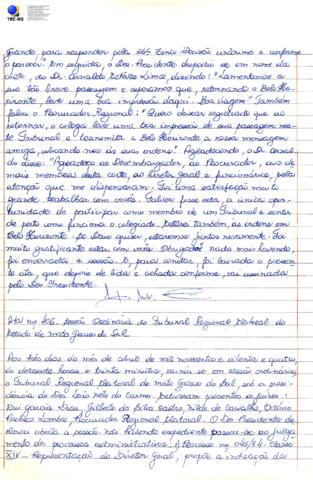 TRE-MS
Grande, para responder pela 34ª Zona. Decisão unânime e conforme
o parecer". Em seguida, o Des. Presidente despediu-se em nome da
Corte, do Dr. Arnaldo Lima, dizendo: "Lamentamos a
sua tão breve passagem e esperamos que, retornando a Belo Ho-
rizonte, leve uma boa impressão daqui. Boa viagem". Também
falou o Procurador Regional: "Quero deixar registrado que ao
retornar, o colega leve uma boa impressão de sua passagem nes-
te Tribunal e transmita a Belo Horizonte a nossa mensagem
amiga, colocando-nos às suas ordens". Agradecendo, o Dr.
disse: "Agradeço ao Desembargador, ao Procurador, aos de-
mais membros desta corte, ao Diretor Geral e funcionários, pela
atenção que me dispensaram. Foi uma satisfação muito
grande trabalhar com vocês. Talvez fosse esta, a única opor-
tunidade de participar como membro de um Tribunal e sentir
de perto como funciona o colegiado. Estarei também, às ordens em
Belo Horizonte. Se Deus quiser, estaremos juntos novamente. Foi
muito gratificante estar com vocês. Obrigado". Nada mais havendo,
foi encerrada a sessão. E, para constar, foi lavrada a presen-
te ata, que depois de lida e achada conforme, vai assinada
pelo Des. Presidente.
Ata nº 406. Sessão Ordinária do Tribunal Regional Eleitoral do
Estado de Mato Grosso do Sul
Aos três dias do mês de abril de mil novecentos e oitenta e quatro,
às dezessete horas e trinta minutos, reuniu-se em sessão ordinária,
o Tribunal Regional Eleitoral de Mato Grosso do Sul, sob a presi-
dência do Des. Leão Neto do Carmo. Estiveram presentes os juízes:
Rui Garcia Dias, Gilberto da Silva Castro, Nildo de Carvalho,
Pacheco Lomba, Procurador Regional Eleitoral. O Des. Presidente de-
clarou aberta a sessão. Não havendo expediente passou-se ao julga-
mento de processos administrativos: 1) Processo nº 045/84 - Classe
XIV - Representação do Diretor Geral, propõe a indicação da